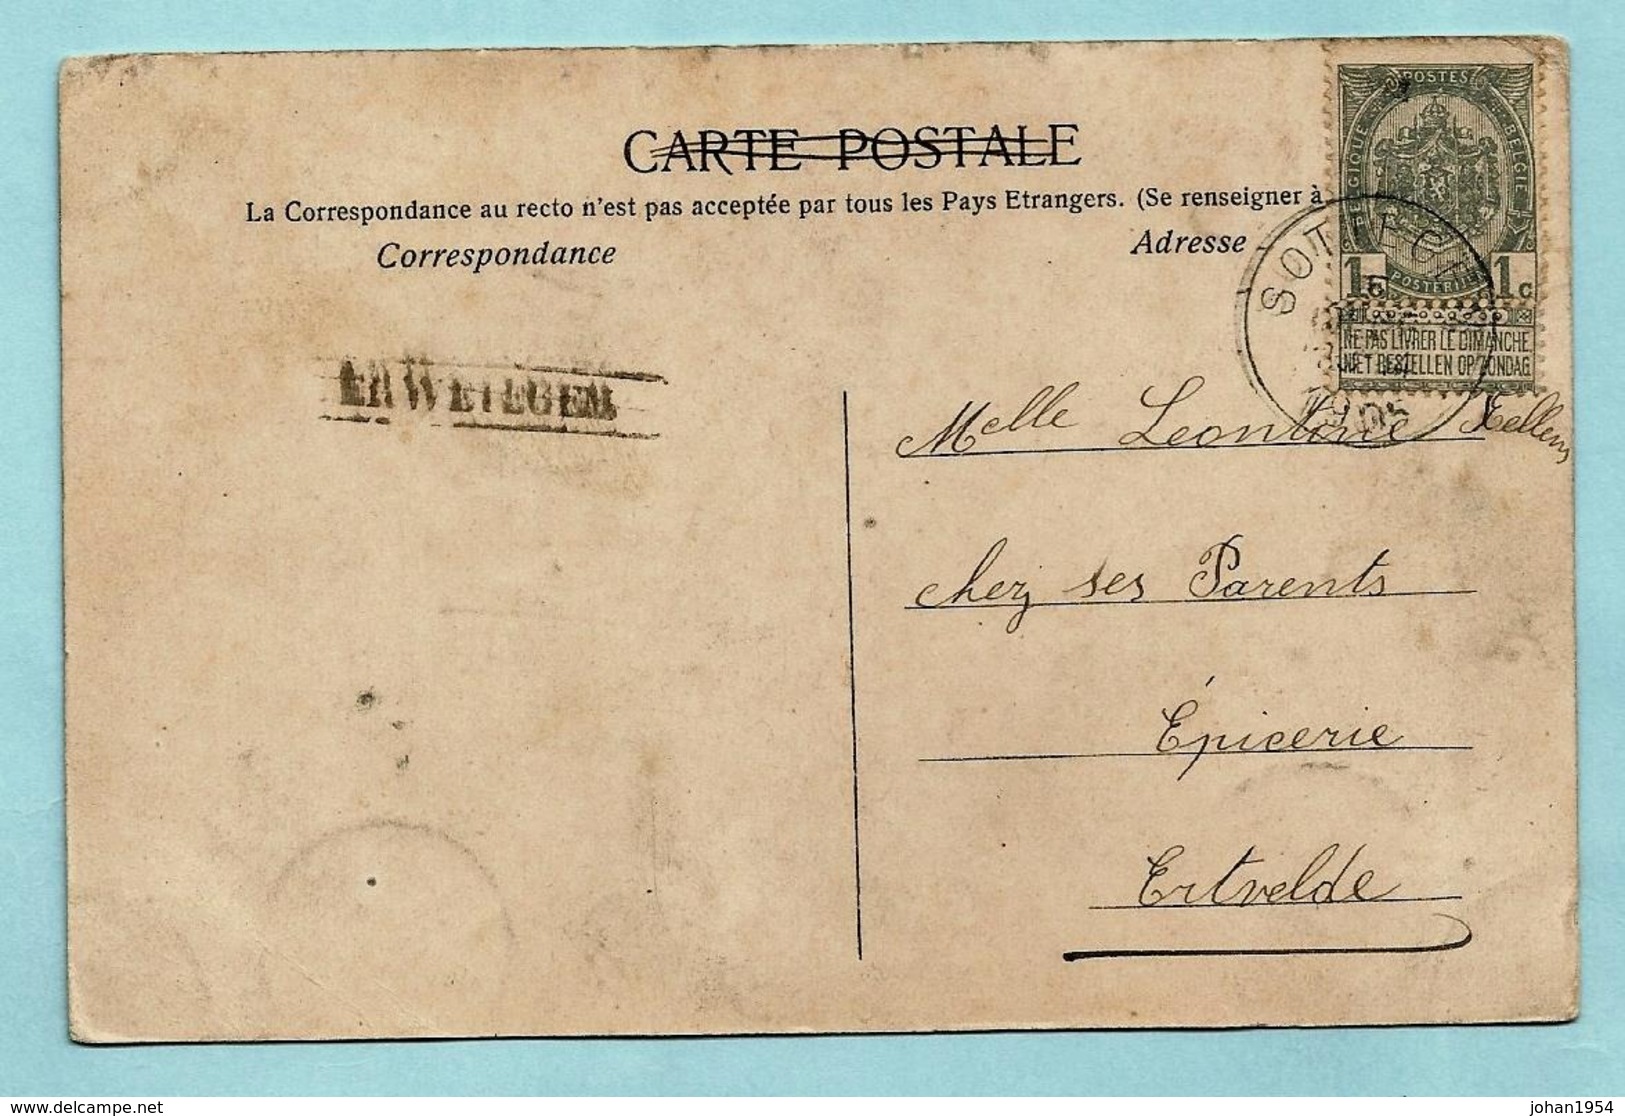 CARTE POSTALE
La Correspondance au recto n'est pas acceptée par tous les Pays Etrangers. (Se renseigner à
Correspondance
Adresse
POSTES
BELGIQUE
BELGIE
POSTERIJEN
1c 1c
NE PAS LIVRER LE DIMANCHE
NIET BESTELLEN OP ZONDAG
SOTTEGEM
1905
ERWETEGEM
Melle Leontine
chez ses Parents
Épicerie
Ertvelde
delcampe.net
johan1954